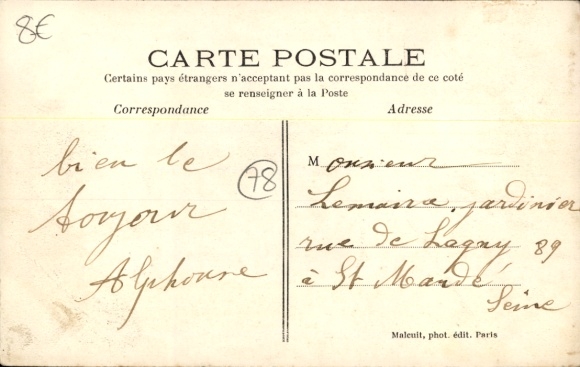 8€
CARTE POSTALE
Certains pays étrangers n'acceptant pas la correspondance de ce coté
se renseigner à la Poste
Correspondance
Adresse
bien le
bonjour
Alphonse
78
Monsieur
Lemaire, jardinier
rue de Lagny 89
à St Mandé
Seine
Malcuit, phot. édit. Paris